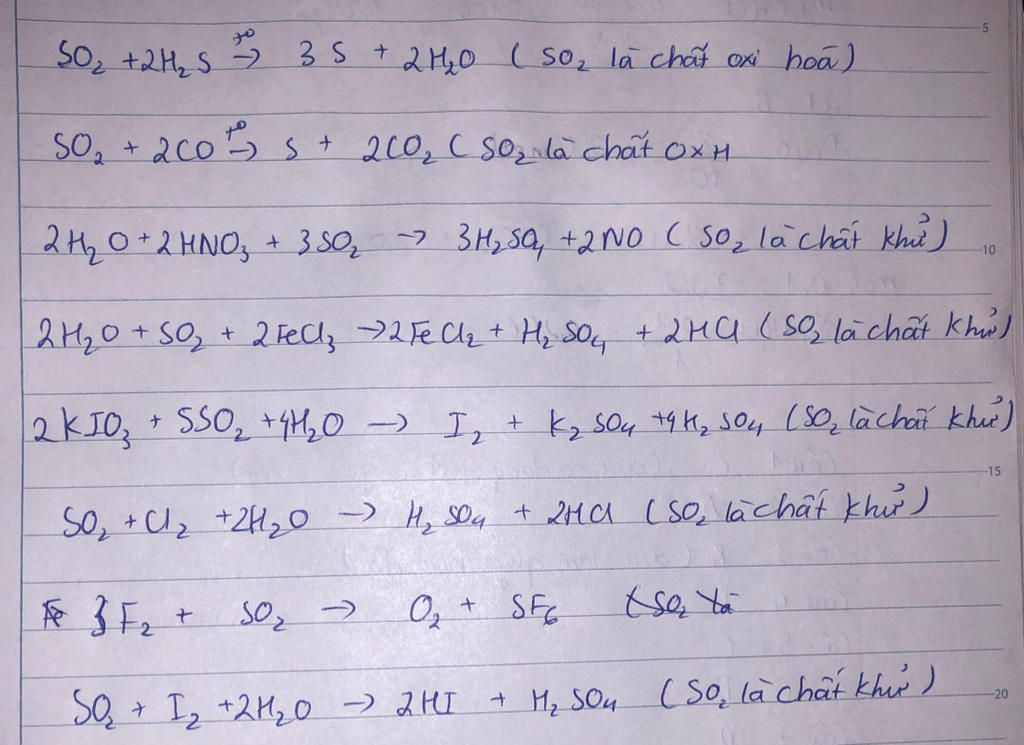 SO₂ + 2H₂S →(t°) 3 S + 2H₂O (SO₂ là chất oxi hoá)
SO₂ + 2CO →(t°) S + 2CO₂ (SO₂ là chất OXH
2H₂O + 2HNO₃ + 3SO₂ → 3H₂SO₄ + 2NO (SO₂ là chất khử)
2H₂O + SO₂ + 2FeCl₃ → 2FeCl₂ + H₂SO₄ + 2HCl (SO₂ là chất khử)
2KIO₃ + 5SO₂ + 4H₂O → I₂ + K₂SO₄ + 4H₂SO₄ (SO₂ là chất khử)
SO₂ + Cl₂ + 2H₂O → H₂SO₄ + 2HCl (SO₂ là chất khử)
3F₂ + SO₂ → O₂ + SF₆ (SO₂ là
SO₂ + I₂ + 2H₂O → 2HI + H₂SO₄ (SO₂ là chất khử)
5
10
15
20